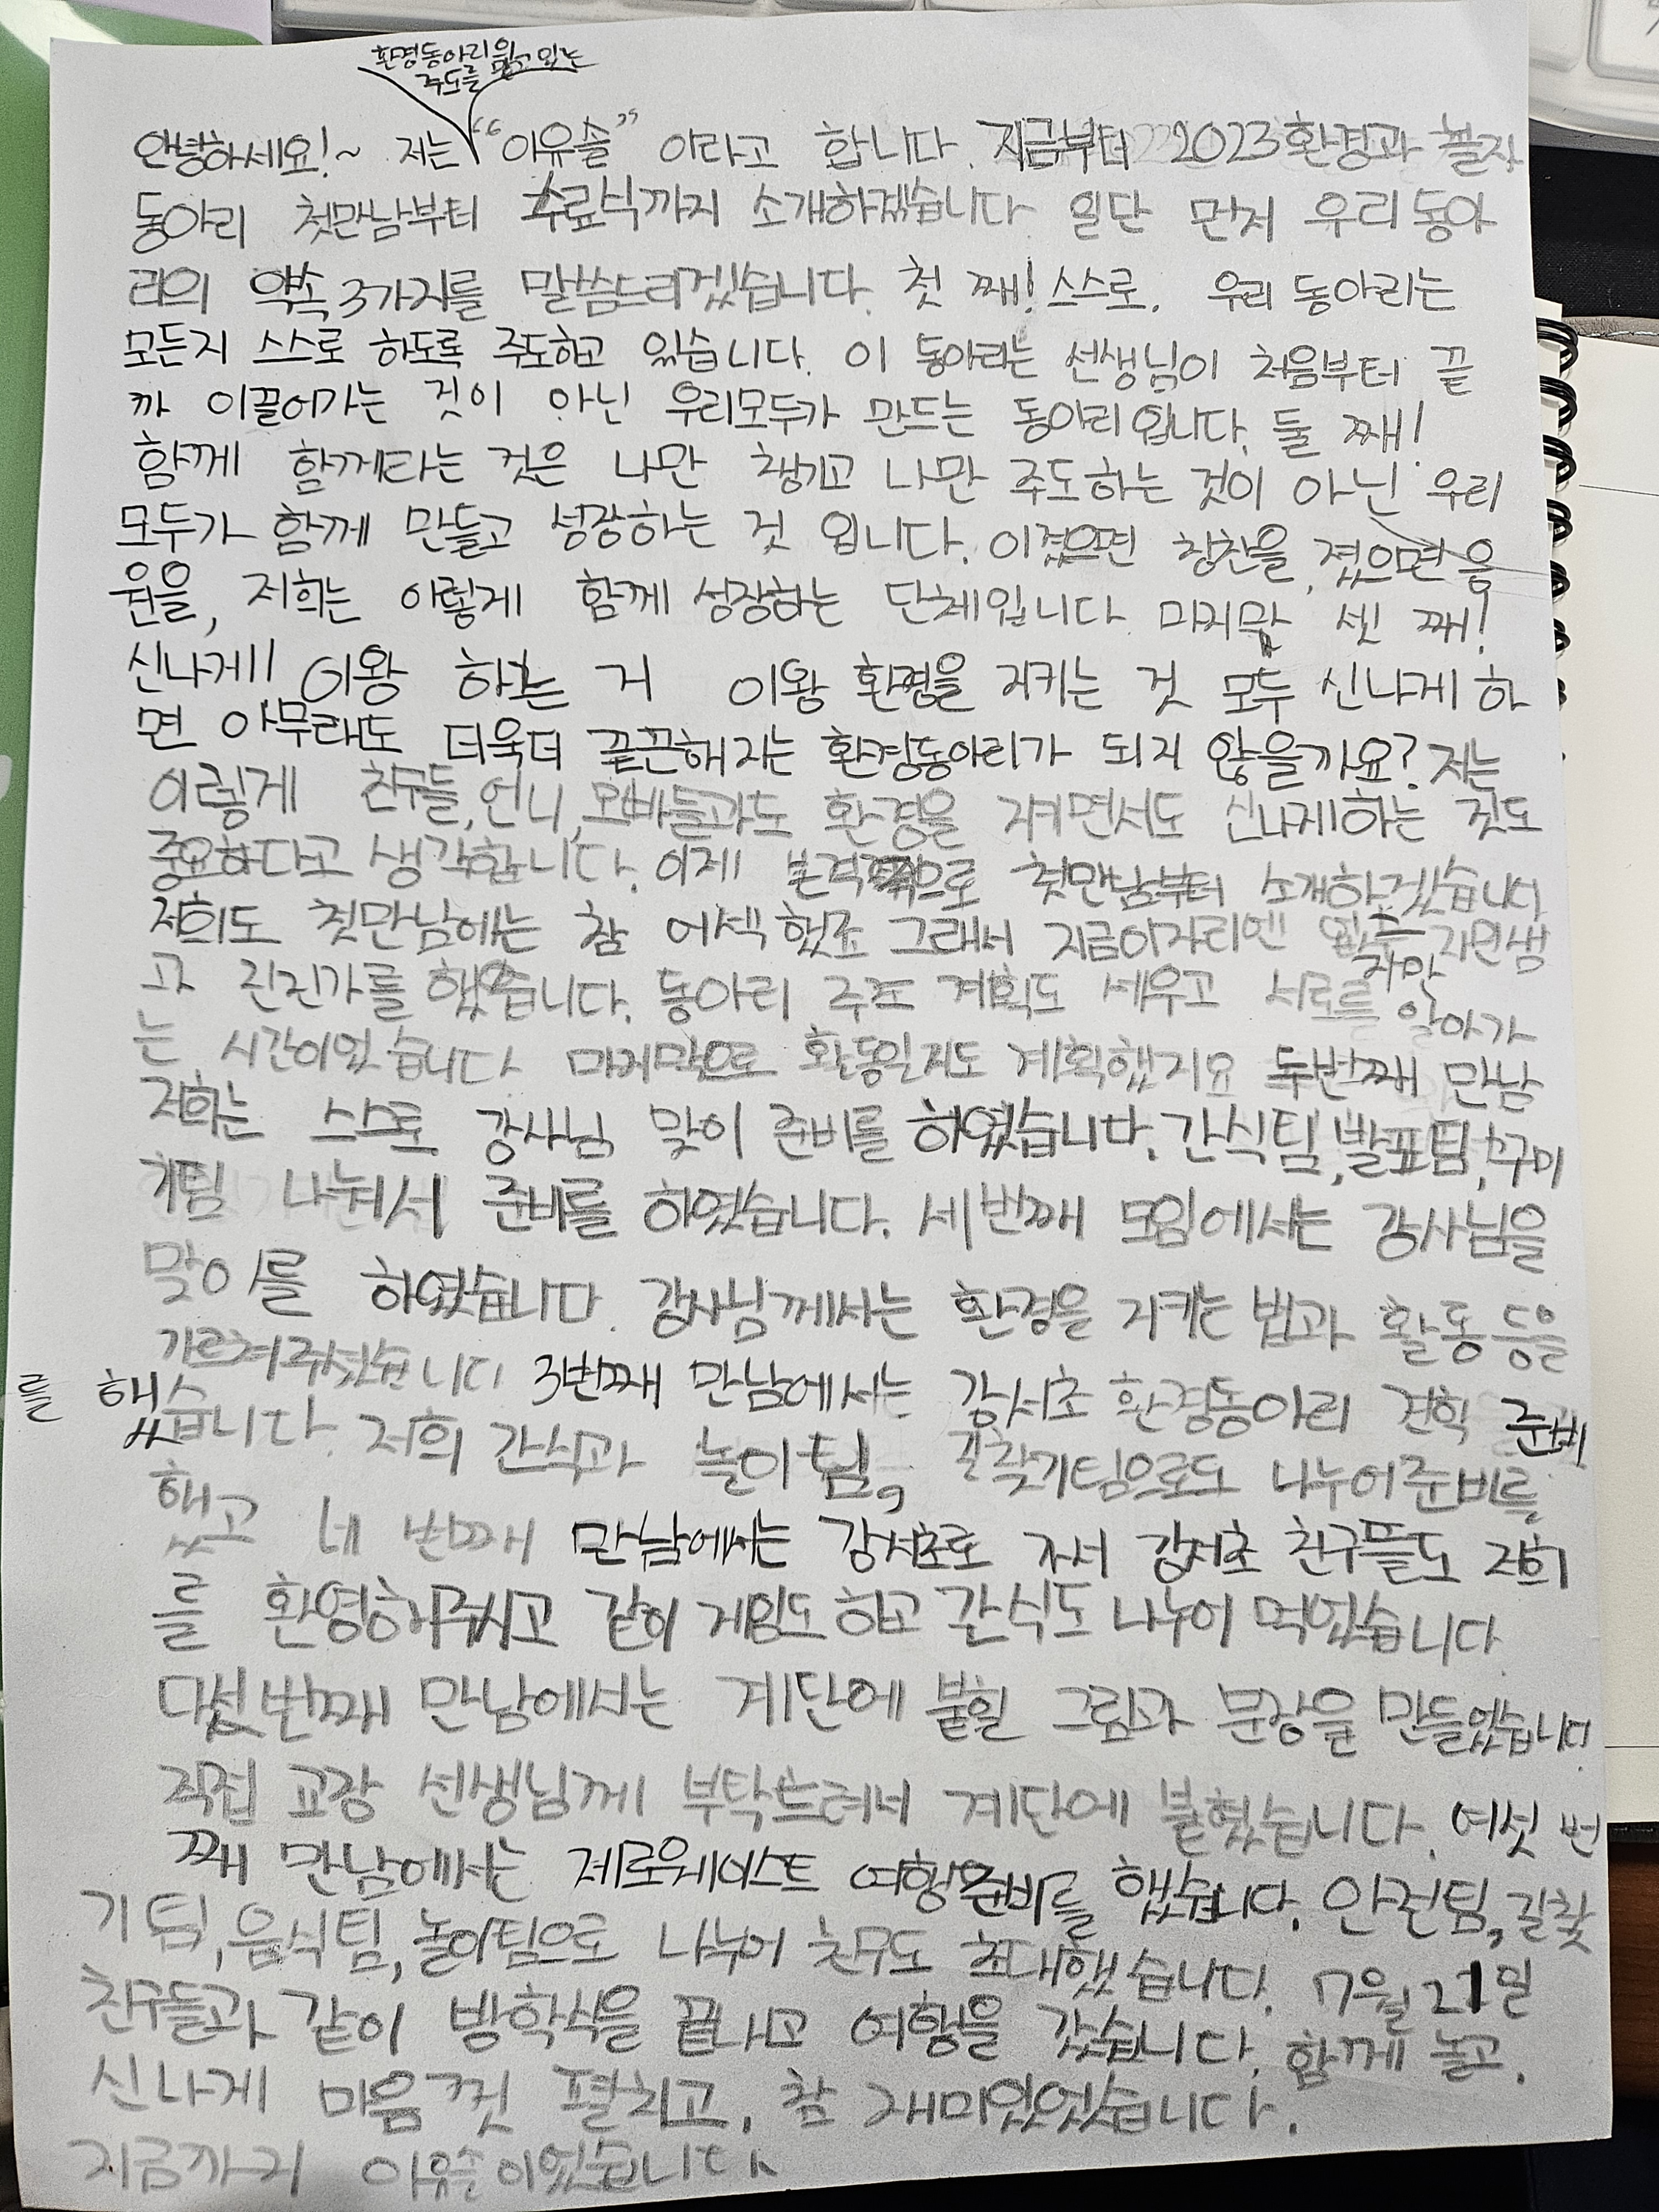 환경동아리원
주도를 맡고 있는
안녕하세요!~ 저는 "이유솔" 이라고 합니다. 지금부터 2023환경과 놀자
동아리 첫만남부터 수료식까지 소개하겠습니다 일단 먼저 우리동아
리의 약속 3가지를 말씀드리겠습니다. 첫 째! 스스로. 우리 동아리는
모든지 스스로 하도록 주도하고 있습니다. 이 동아리는 선생님이 처음부터 끝
까 이끌어가는 것이 아닌 우리모두가 만드는 동아리입니다. 둘 째!
함께 함께라는 것은 나만 챙기고 나만 주도하는 것이 아닌 우리
모두가 함께 만들고 성장하는 것 입니다. 이겼으면 칭찬을, 졌으면 응
원을, 저희는 이렇게 함께 성장하는 단체입니다. 마지막 셋 째!
신나게! 이왕 하는 거 이왕 환경을 지키는 것 모두 신나게 하
면 아무래도 더욱더 끝끈해지는 환경동아리가 되지 않을까요? 저는
이렇게 친구들, 언니, 오빠들과도 환경을 지키면서도 신나게하는 것도
중요하다고 생각합니다. 이제 본격적으로 첫만남부터 소개하겠습니다
저희도 첫만남에는 참 어색했죠 그래서 지금이자리엔 없는 자연생
자만
과 진진가를 했습니다. 동아리 주조 계획도 세우고 서로를 알아가
는 시간이었습니다. 마지막으로 활동일지도 계획했지요 두번째 만남
저희는 스스로 강사님 맞이 준비를 하였습니다. 간식팀, 발표팀, 꾸미
기팀 나눠서 준비를 하였습니다. 세번째 모임에서는 강사님을
맞이를 하였습니다. 강사님께서는 환경을 지키는 법과 활동 등을
가르쳐주셨습니다 3번째 만남에서는 강서초 환경동아리 견학 준비
를 했습니다. 저희 간식과 놀이팀, 길찾기팀으로도 나누어준비를
했고 네 번째 만남에서는 강서초로 가서 강서초 친구뜰도 저희
를 환영해주시고 같이 게임도 하고 간식도 나누어 먹었습니다
다섯번째 만남에서는 계단에 붙힐 그림과 문장을 만들었습니다.
직접 교장 선생님께 부탁드려서 계단에 붙혔습니다. 여섯 번
째 만남에서는 제로웨이스트 여행준비를 했습니다. 안전팀, 길찾
기팀, 음식팀, 놀이팀으로 나누어 친구도 초대했습니다. 7월 21일
친구들과 같이 방학식을 끝나고 여행을 갔습니다. 함께 놀고,
신나게 마음껏 펼치고, 참 재미있었습니다.
지금까지 이유솔이었습니다